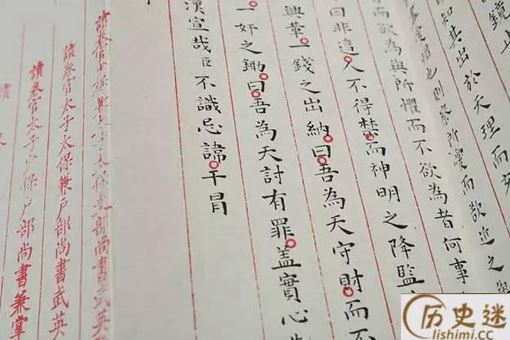 知其出於天理而充
所愛而欲近之與
而欲為與所懼而不欲為者何事
曰非遣人不得焚而神明之降監
一錢之出納曰吾為天守財而不
一奸之鋤曰吾為天討有罪盖實心
漢宣哉臣不識忌諱干冒
讀卷官太子太保兼戶部尚書武英
讀卷官太子少保戶部尚書兼掌
讀
历史迷
lishimi.cc